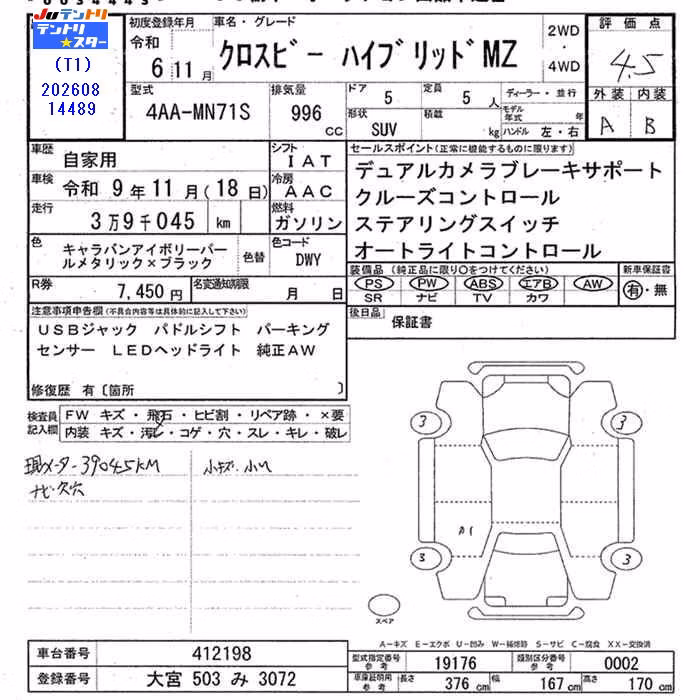 Juテントリ
テントリ★スター
(T1)
202608
14489
初度登録年月
令和
6 11 月
車名・グレード
クロスビー ハイブリッドMZ
2WD
・
4WD
評価点
4.5
外装 内装
A B
型式
4AA-MN71S
排気量
996
cc
ドア
5
定員
5 人
形状
SUV
積載
kg
ディーラー・並行
モデル年式 年
ハンドル 左・右
車歴
自家用
シフト
IAT
車検
令和 9 年 11 月 (18 日)
冷房
AAC
走行
3 万 9 千 045 km
燃料
ガソリン
色
キャラバンアイボリーパー
ルメタリック×ブラック
色替
色コード
DWY
R券
7,450 円
名変通知期限
月 日
セールスポイント(正常に機能するものに限ります)
デュアルカメラブレーキサポート
クルーズコントロール
ステアリングスイッチ
オートライトコントロール
装備品 (純正品に限り○をつけてください)
PS PW ABS エアB AW
SR ナビ TV カワ
新車保証書
有・無
後日品
保証書
注意事項申告欄 (不具合内容等は具体的に記入して下さい)
USBジャック パドルシフト パーキング
センサー LEDヘッドライト 純正AW
修復歴 有〔箇所 〕
検査員
記入欄
FW キズ・飛石・ヒビ割・リペア跡・×要
内装 キズ・汚レ・コゲ・穴・スレ・キレ・破レ
現メーター39045KM
ナビ欠穴
小キズ・小U
3
3
3
3
カ1
スペア
A-キズ E-エクボ U-凹み W-補修跡 S-サビ C-腐食 XX-交換済
車台番号
412198
登録番号
大宮 503 み 3072
型式指定番号
参考
19176
類別区分番号
参考
0002
車庫証明用
参考
長さ
376 cm
幅
167 cm
高さ
170 cm